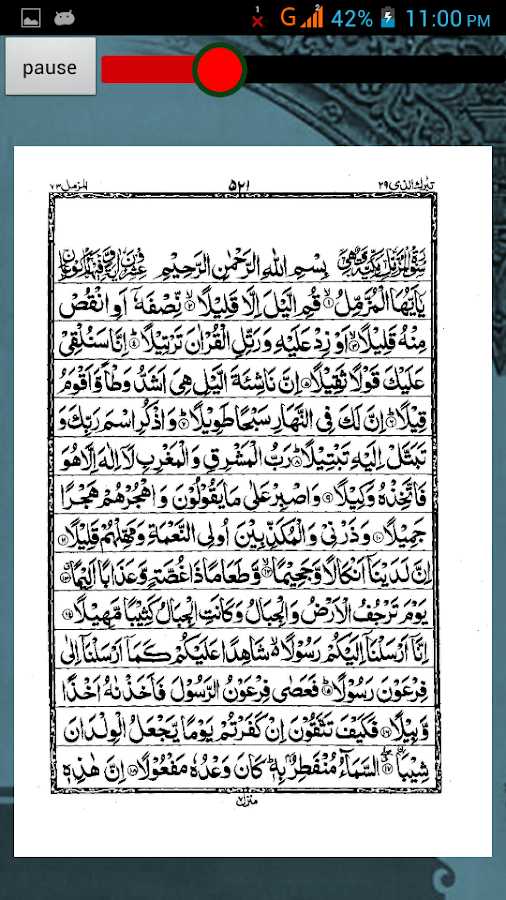 1 G 2 42% 11:00 PM
pause
تبرك الذي ٢٩ ٥٢١ المزمل ٧٣
بِسْمِ اللهِ الرَّحْمٰنِ الرَّحِيْمِ
يٰۤاَيُّهَا الْمُزَّمِّلُ ۙ﴿۱﴾ قُمِ الَّيْلَ اِلَّا قَلِيْلًا ۙ﴿۲﴾ نِّصْفَهٗۤ اَوِ انْقُصْ
مِنْهُ قَلِيْلًا ۙ﴿۳﴾ اَوْ زِدْ عَلَيْهِ وَرَتِّلِ الْقُرْاٰنَ تَرْتِيْلًا ؕ﴿۴﴾ اِنَّا سَنُلْقِيْ
عَلَيْكَ قَوْلًا ثَقِيْلًا ﴿۵﴾ اِنَّ نَاشِئَةَ الَّيْلِ هِيَ اَشَدُّ وَطْاً وَّ اَقْوَمُ
قِيْلًا ؕ﴿۶﴾ اِنَّ لَكَ فِي النَّهَارِ سَبْحًا طَوِيْلًا ؕ﴿۷﴾ وَاذْكُرِ اسْمَ رَبِّكَ وَ
تَبَتَّلْ اِلَيْهِ تَبْتِيْلًا ؕ﴿۸﴾ رَبُّ الْمَشْرِقِ وَ الْمَغْرِبِ لَاۤ اِلٰهَ اِلَّا هُوَ
فَاتَّخِذْهُ وَكِيْلًا ﴿۹﴾ وَاصْبِرْ عَلٰى مَا يَقُوْلُوْنَ وَ اهْجُرْهُمْ هَجْرًا
جَمِيْلًا ﴿۱۰﴾ وَ ذَرْنِيْ وَ الْمُكَذِّبِيْنَ اُولِي النَّعْمَةِ وَ مَهِّلْهُمْ قَلِيْلًا ﴿۱۱﴾
اِنَّ لَدَيْنَاۤ اَنْكَالًا وَّ جَحِيْمًا ۙ﴿۱۲﴾ وَّ طَعَامًا ذَا غُصَّةٍ وَّ عَذَابًا اَلِيْمًا ﴿۱۳﴾
يَوْمَ تَرْجُفُ الْاَرْضُ وَ الْجِبَالُ وَ كَانَتِ الْجِبَالُ كَثِيْبًا مَّهِيْلًا ﴿۱۴﴾
اِنَّاۤ اَرْسَلْنَاۤ اِلَيْكُمْ رَسُوْلًا ۙ شَاهِدًا عَلَيْكُمْ كَمَاۤ اَرْسَلْنَاۤ اِلٰى
فِرْعَوْنَ رَسُوْلًا ؕ﴿۱۵﴾ فَعَصٰى فِرْعَوْنُ الرَّسُوْلَ فَاَخَذْنٰهُ اَخْذًا
وَّبِيْلًا ﴿۱۶﴾ فَكَيْفَ تَتَّقُوْنَ اِنْ كَفَرْتُمْ يَوْمًا يَّجْعَلُ الْوِلْدَانَ
شِيْبًا ۗ﴿۱۷﴾ اۨلسَّمَآءُ مُنْفَطِرٌۢ بِهٖ ؕ كَانَ وَعْدُهٗ مَفْعُوْلًا ﴿۱۸﴾ اِنَّ هٰذِهٖ
منزل ٧